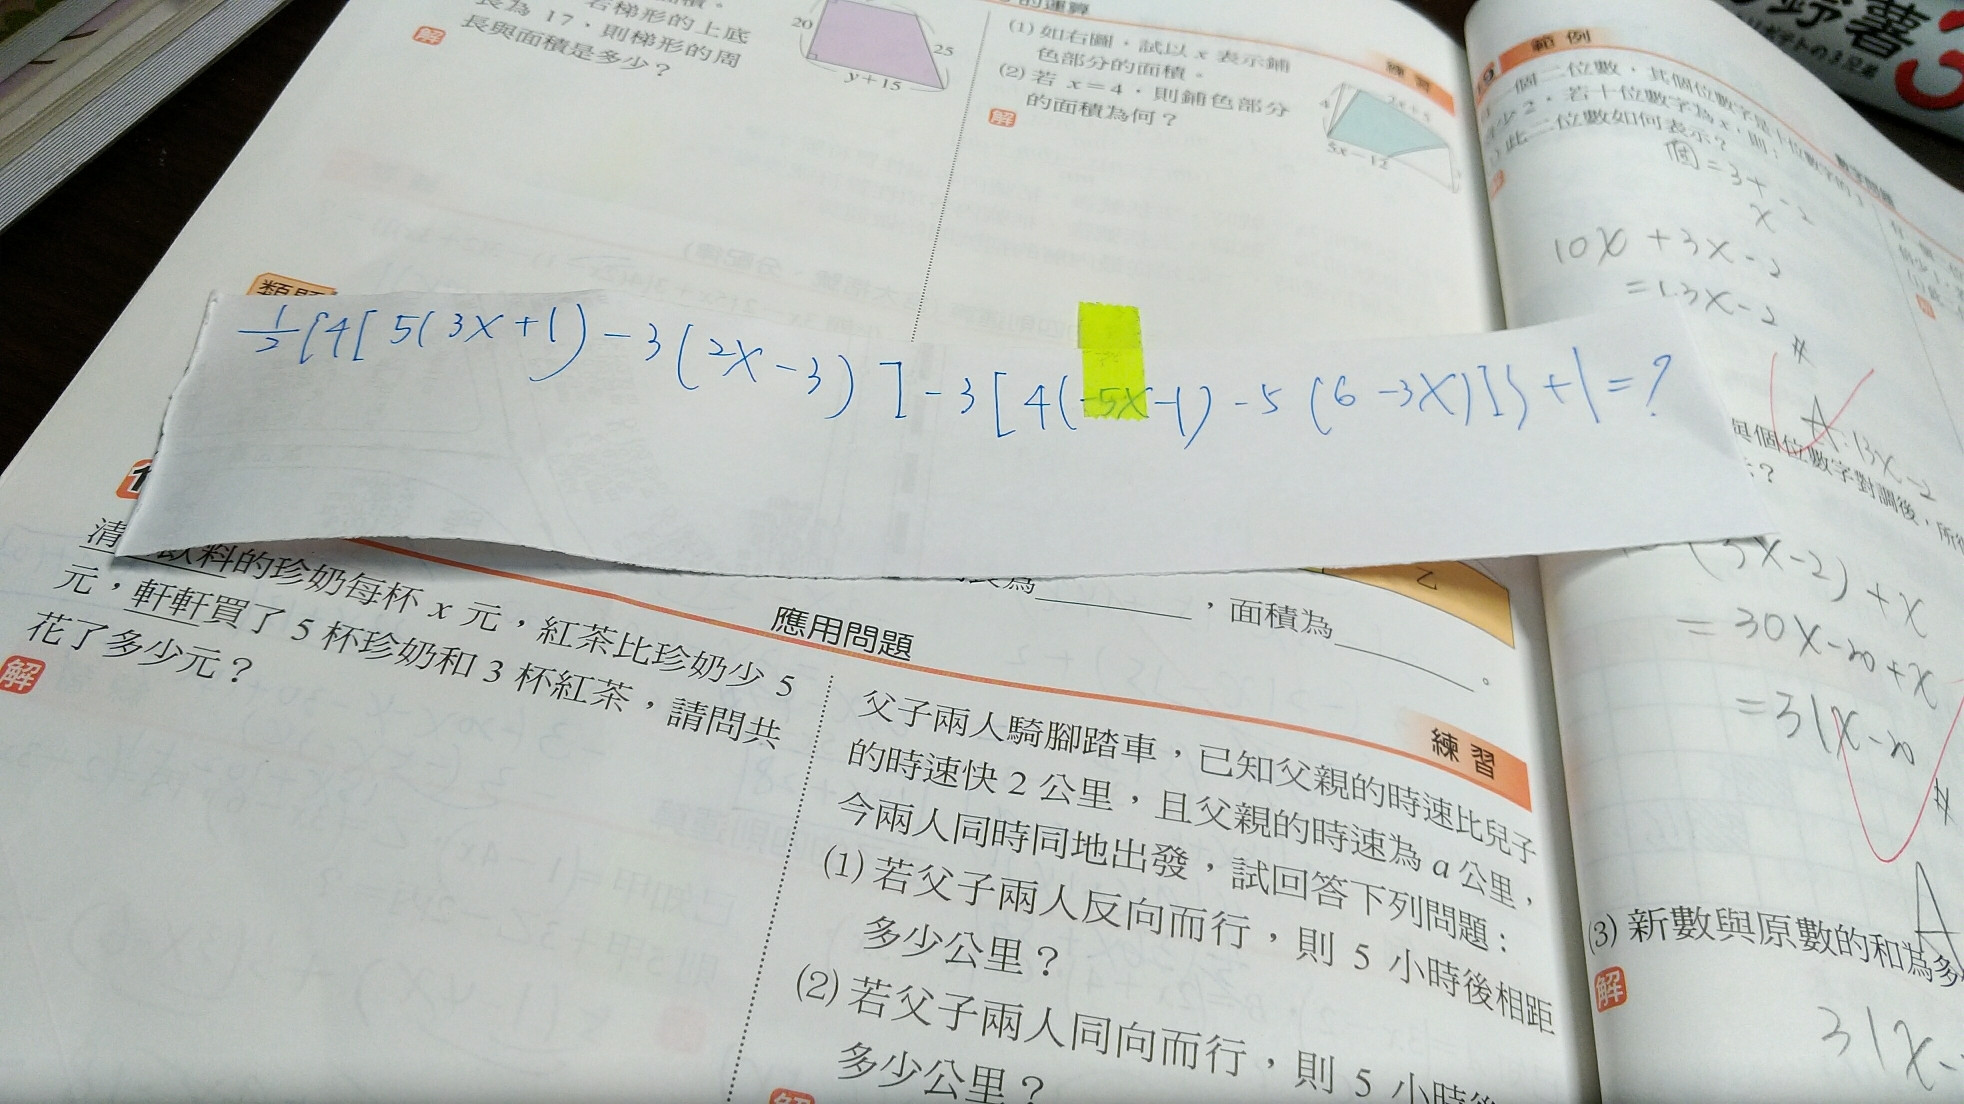 若梯形的上底
長為 17,則梯形的周
長與面積是多少?
解
20
25
y+15
的運算
練習
(1) 如右圖,試以 x 表示鋪
色部分的面積。
(2) 若 x=4,則鋪色部分
的面積為何?
解
4
5x-12
範例
數字問題
一個二位數,其個位數字是十位數字的
少 2,若十位數字為 x,則:
此二位數如何表示?
10x+3x-2
=13x-2 #
A:13x-2
類題
1/2{4[5(3x+1)-3(2x-3)]-3[4(-5x-1)-5(6-3x)]}+1=?
與個位數字對調後,所
(3x-2)+x
=30x-20+x
=31x-20 #
乙
,面積為
。
應用問題
飲料的珍奶每杯 x 元,紅茶比珍奶少 5
元,軒軒買了 5 杯珍奶和 3 杯紅茶,請問共
花了多少元?
解
練習
父子兩人騎腳踏車,已知父親的時速比兒子
的時速快 2 公里,且父親的時速為 a 公里,
今兩人同時同地出發,試回答下列問題:
(1) 若父子兩人反向而行,則 5 小時後相距
多少公里?
(2) 若父子兩人同向而行,則 5 小時後
多少公里?
解
(3) 新數與原數的和為多
解
31x-